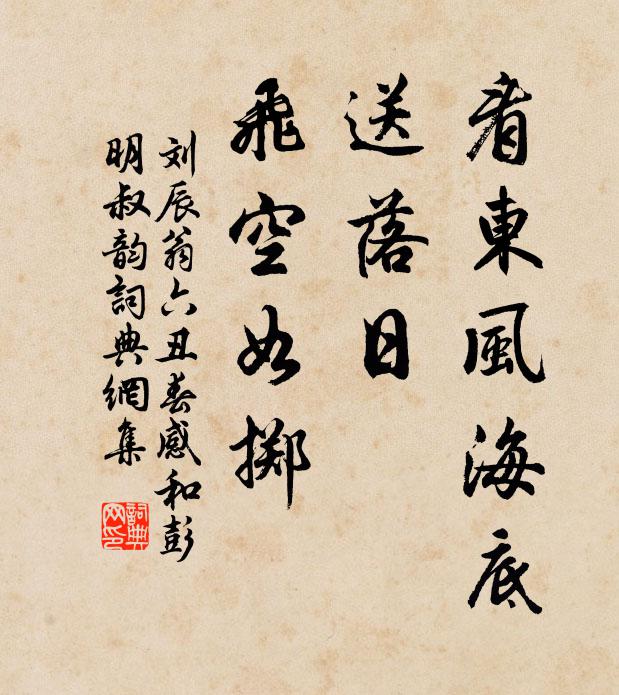 看東風海底
送落日
飛空如擲
刘辰翁六丑春感和彭
明叔韵詞典網集
詞典网印